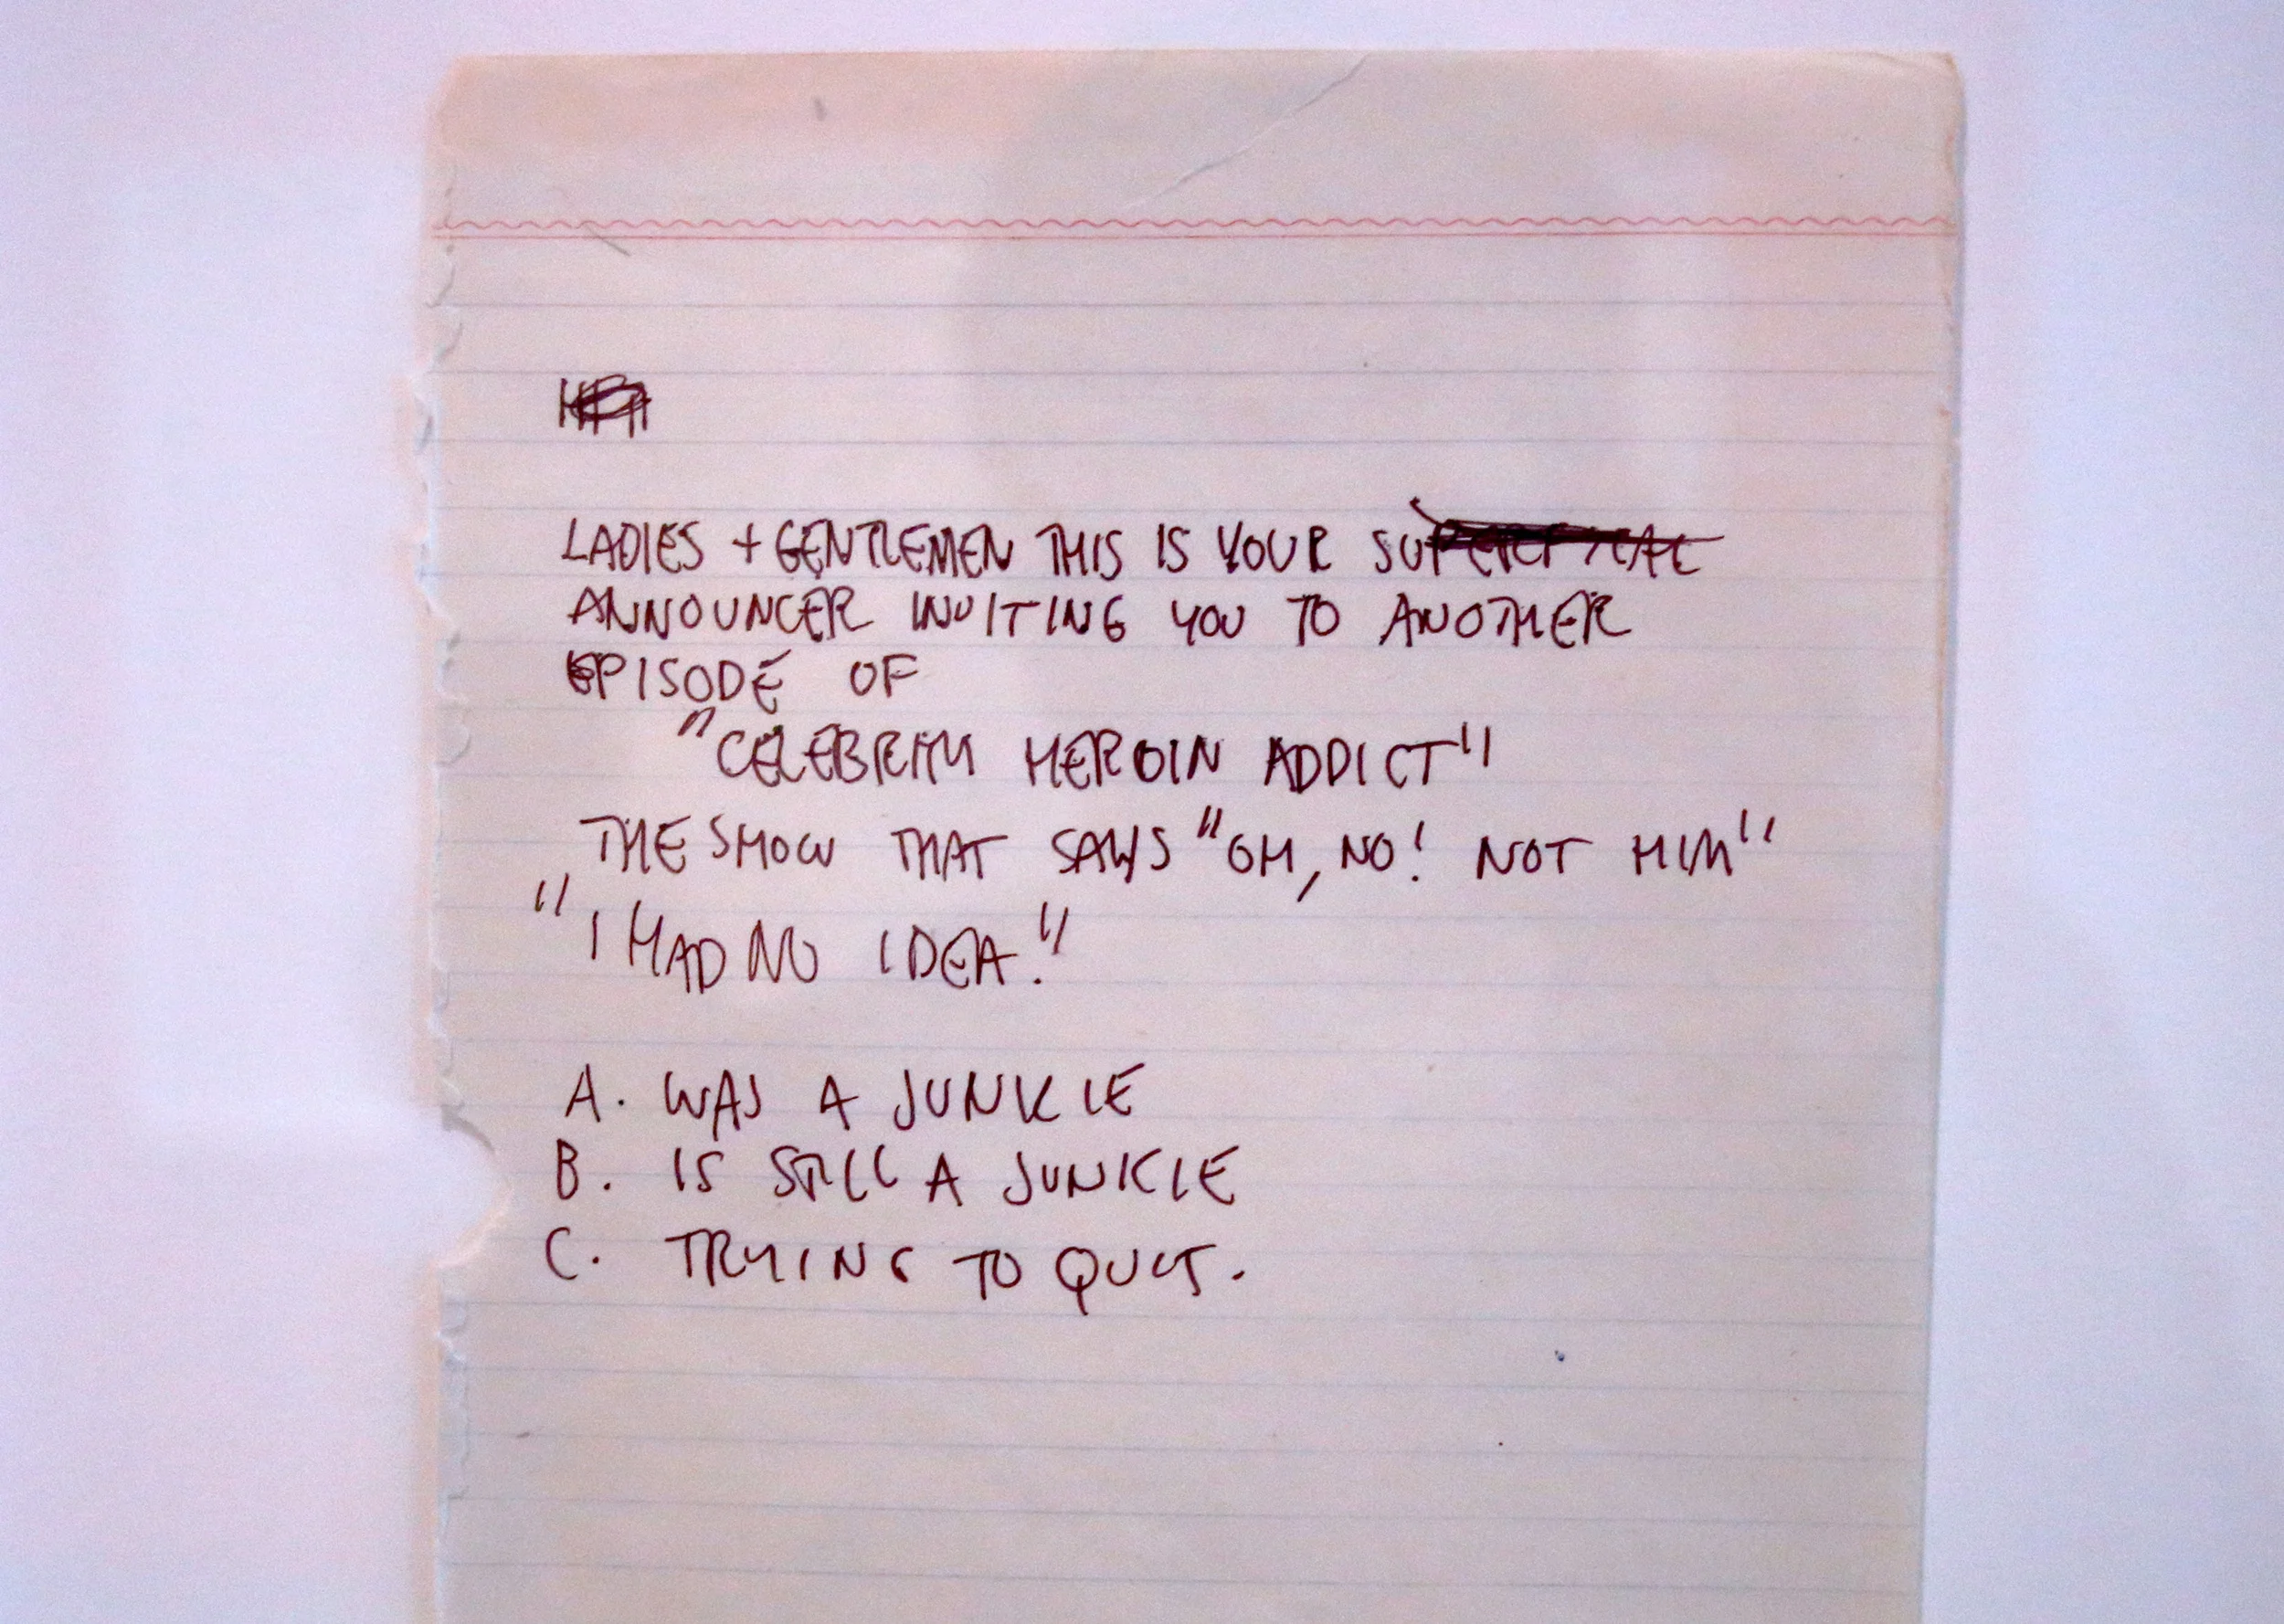 LADIES + GENTLEMEN THIS IS YOUR
ANNOUNCER INVITING YOU TO ANOTHER
EPISODE OF
"CELEBRITY HEROIN ADDICT"
THE SHOW THAT SAYS "OH, NO! NOT HIM"
"I HAD NO IDEA!"
A. WAS A JUNKIE
B. IS STILL A JUNKIE
C. TRYING TO QUIT.